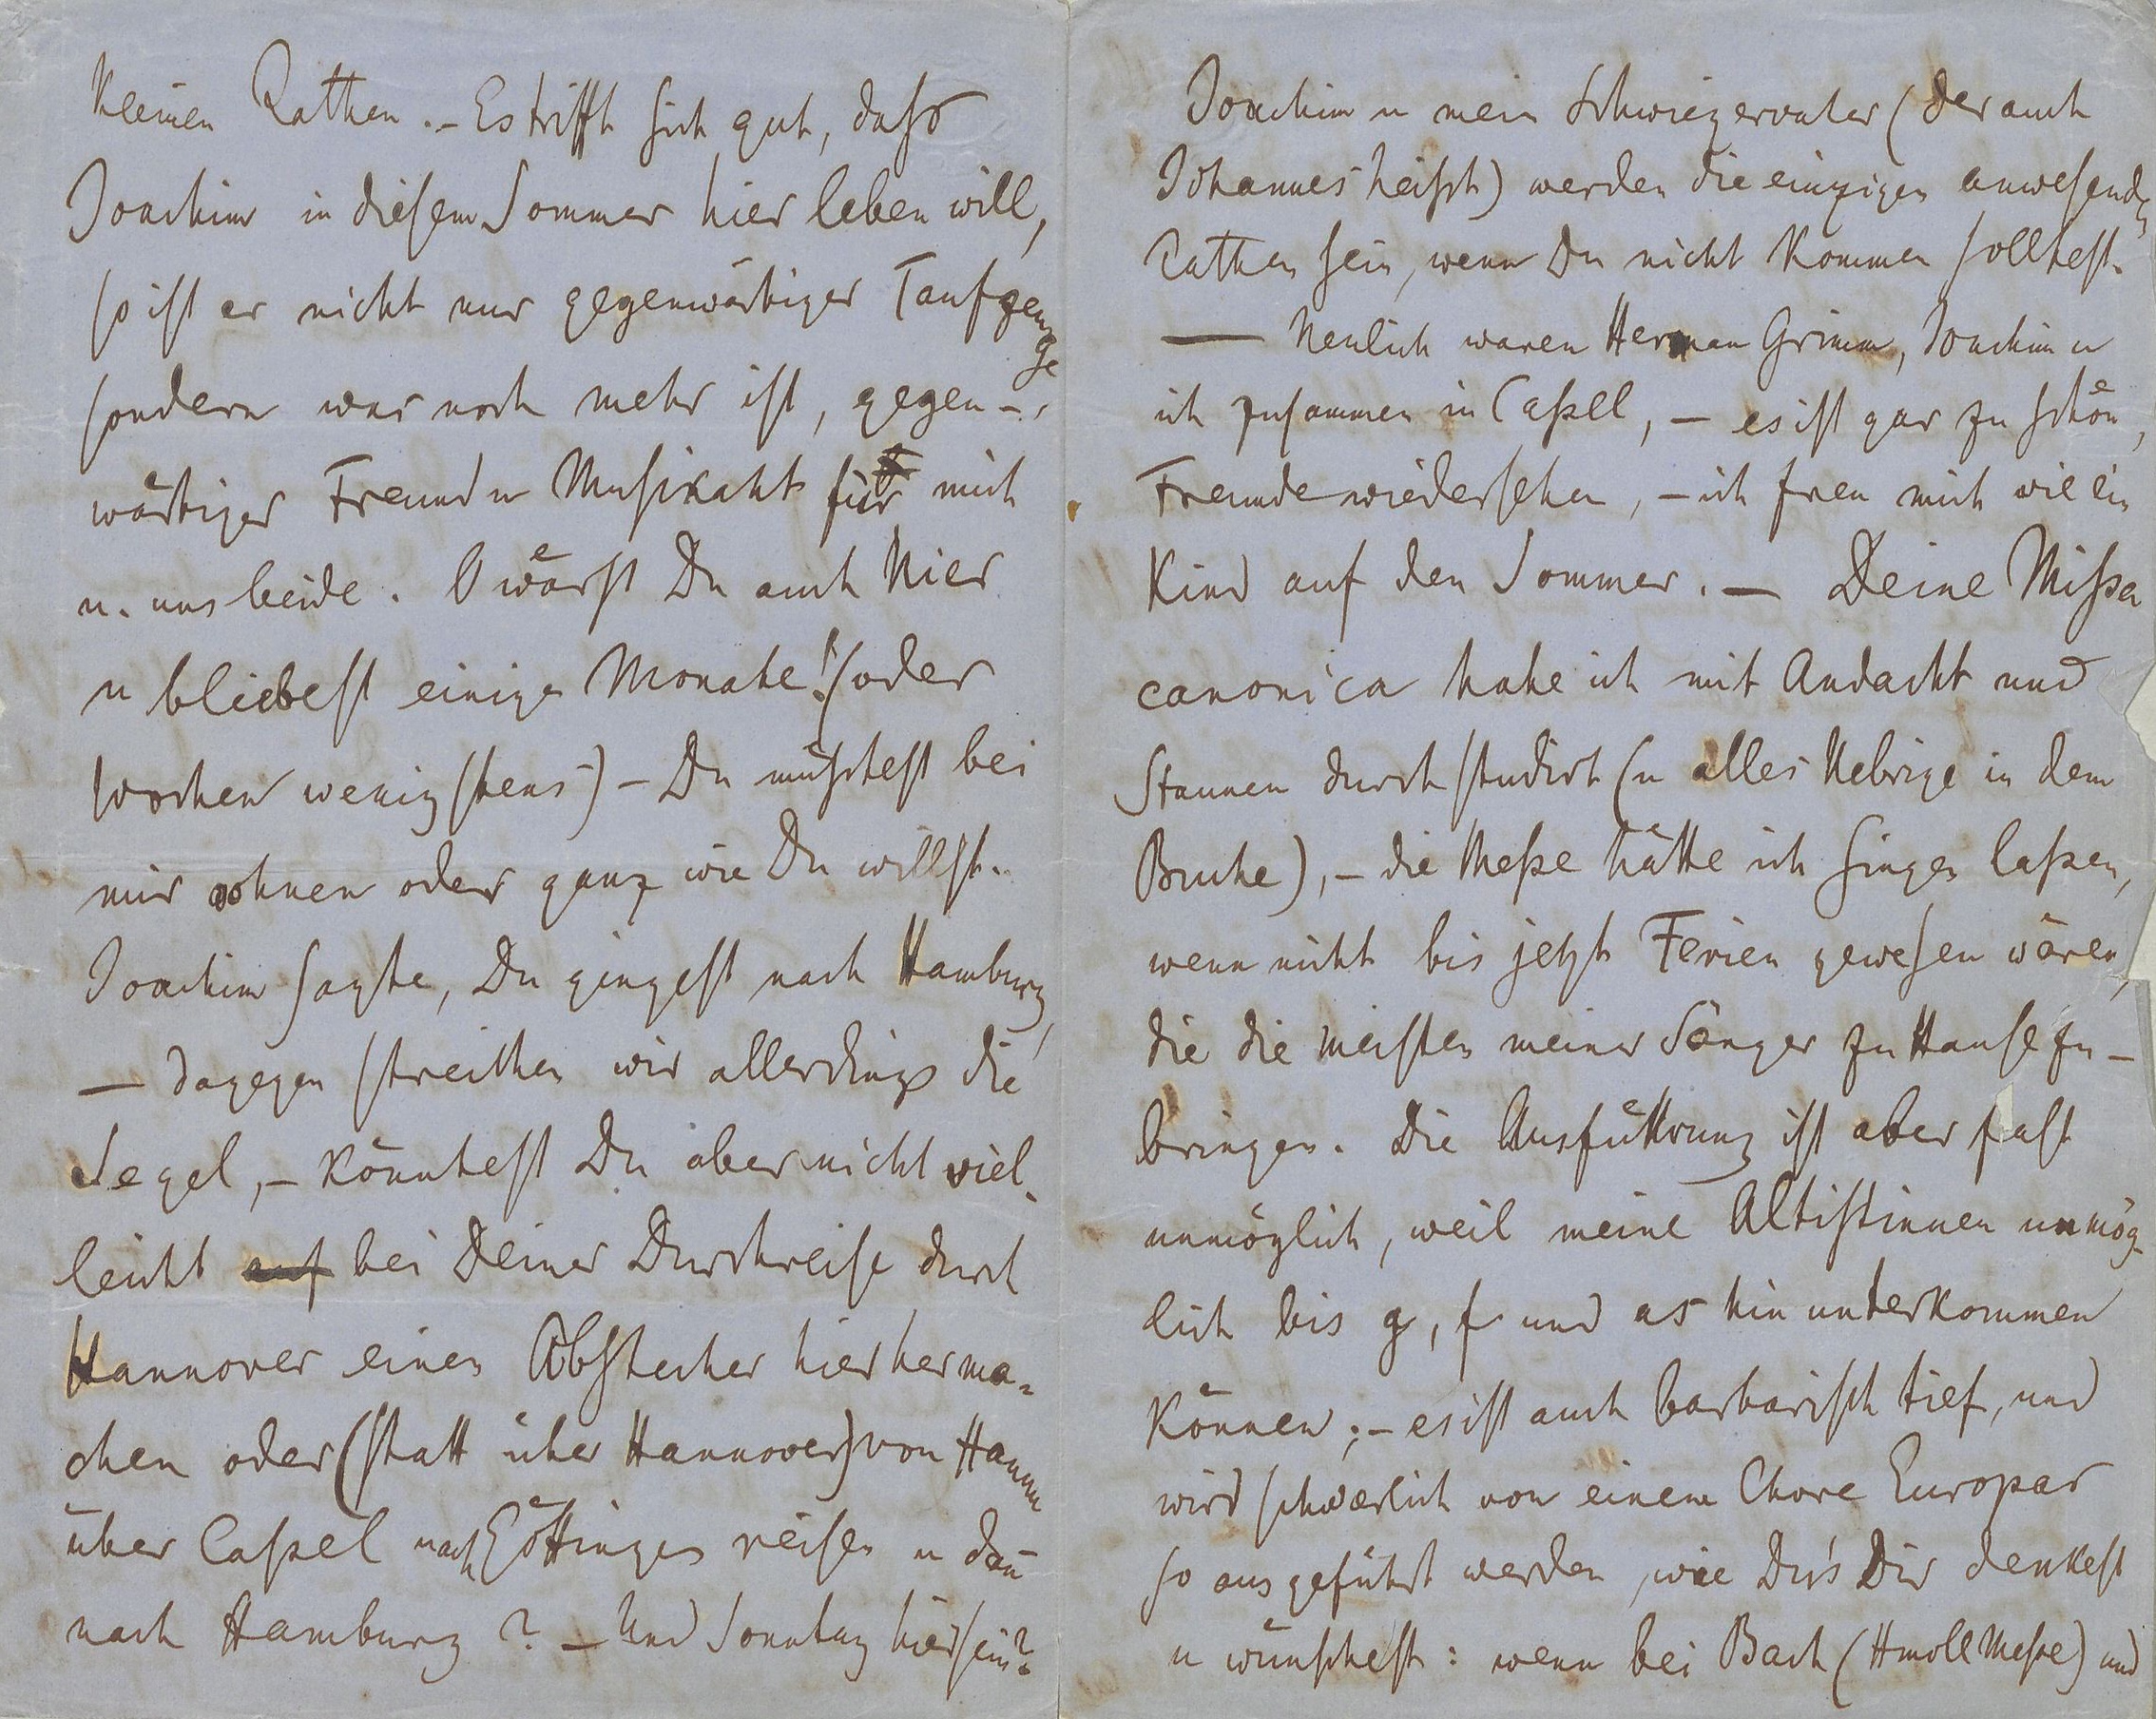 kleinen Pathen. – Es trifft sich gut, daß
Joachim in diesem Sommer hier leben will,
so ist er nicht nur gegenwärtiger Taufzeuge
sondern was noch mehr ist, gegen-
wärtiger Freund u Musikant für mich
u. uns beide. O wärst Du auch hier
u bliebest einige Monate! (oder
Wochen wenigstens) – Du müßtest bei
mir wohnen oder ganz wie Du willst.
Joachim sagte, Du gingest nach Hamburg,
– dagegen streichen wir allerdings die
Segel, – könntest Du aber nicht viel-
leicht auf bei Deiner Durchreise durch
Hannover einen Abstecher hierher ma-
chen oder (statt über Hannover) von Hamm
über Cassel nach Göttingen reisen u dan̄
nach Hamburg? – Und Sonntag hier sein?
Joachim u mein Schwiegervater (der auch
Johannes heißt) werden die einzigen anwesenden
Pathen sein, wenn Du nicht kommen solltest.
— Neulich waren Herman Grimm, Joachim u
ich zusammen in Cassel, – es ist gar zu schön,
Freunde wiedersehen, – ich freu mich wie ein
Kind auf den Sommer. – Deine Missa
canonica habe ich mit Andacht und
Staunen durchstudirt (u alles Uebrige in dem
Buche), – die Messe hätte ich singen lassen,
wenn nicht bis jetzt Ferien gewesen wären,
die die meisten meiner Sänger zu Hause zu-
bringen. Die Ausführung ist aber fast
unmöglich, weil meine Altistinnen unmög-
lich bis g, f und as hinunterkommen
können; – es ist auch barbarisch tief, und
wird schwerlich von einem Chore Europas
so ausgeführt werden, wie Du's Dir denkest
u wünschest: wenn bei Bach (Hmoll Messe) und